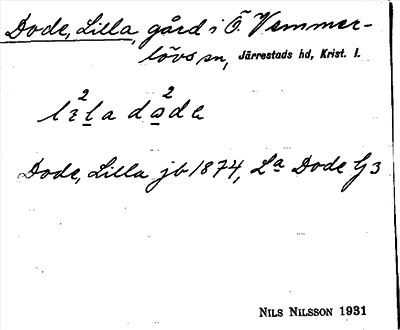 Dode, Lilla, gård i Ö. Vemmer-
lövs sn, Järrestads hd, Krist. l.
2 2
lila dode
Dode, Lilla jb 1874, La Dode G3
NILS NILSSON 1931